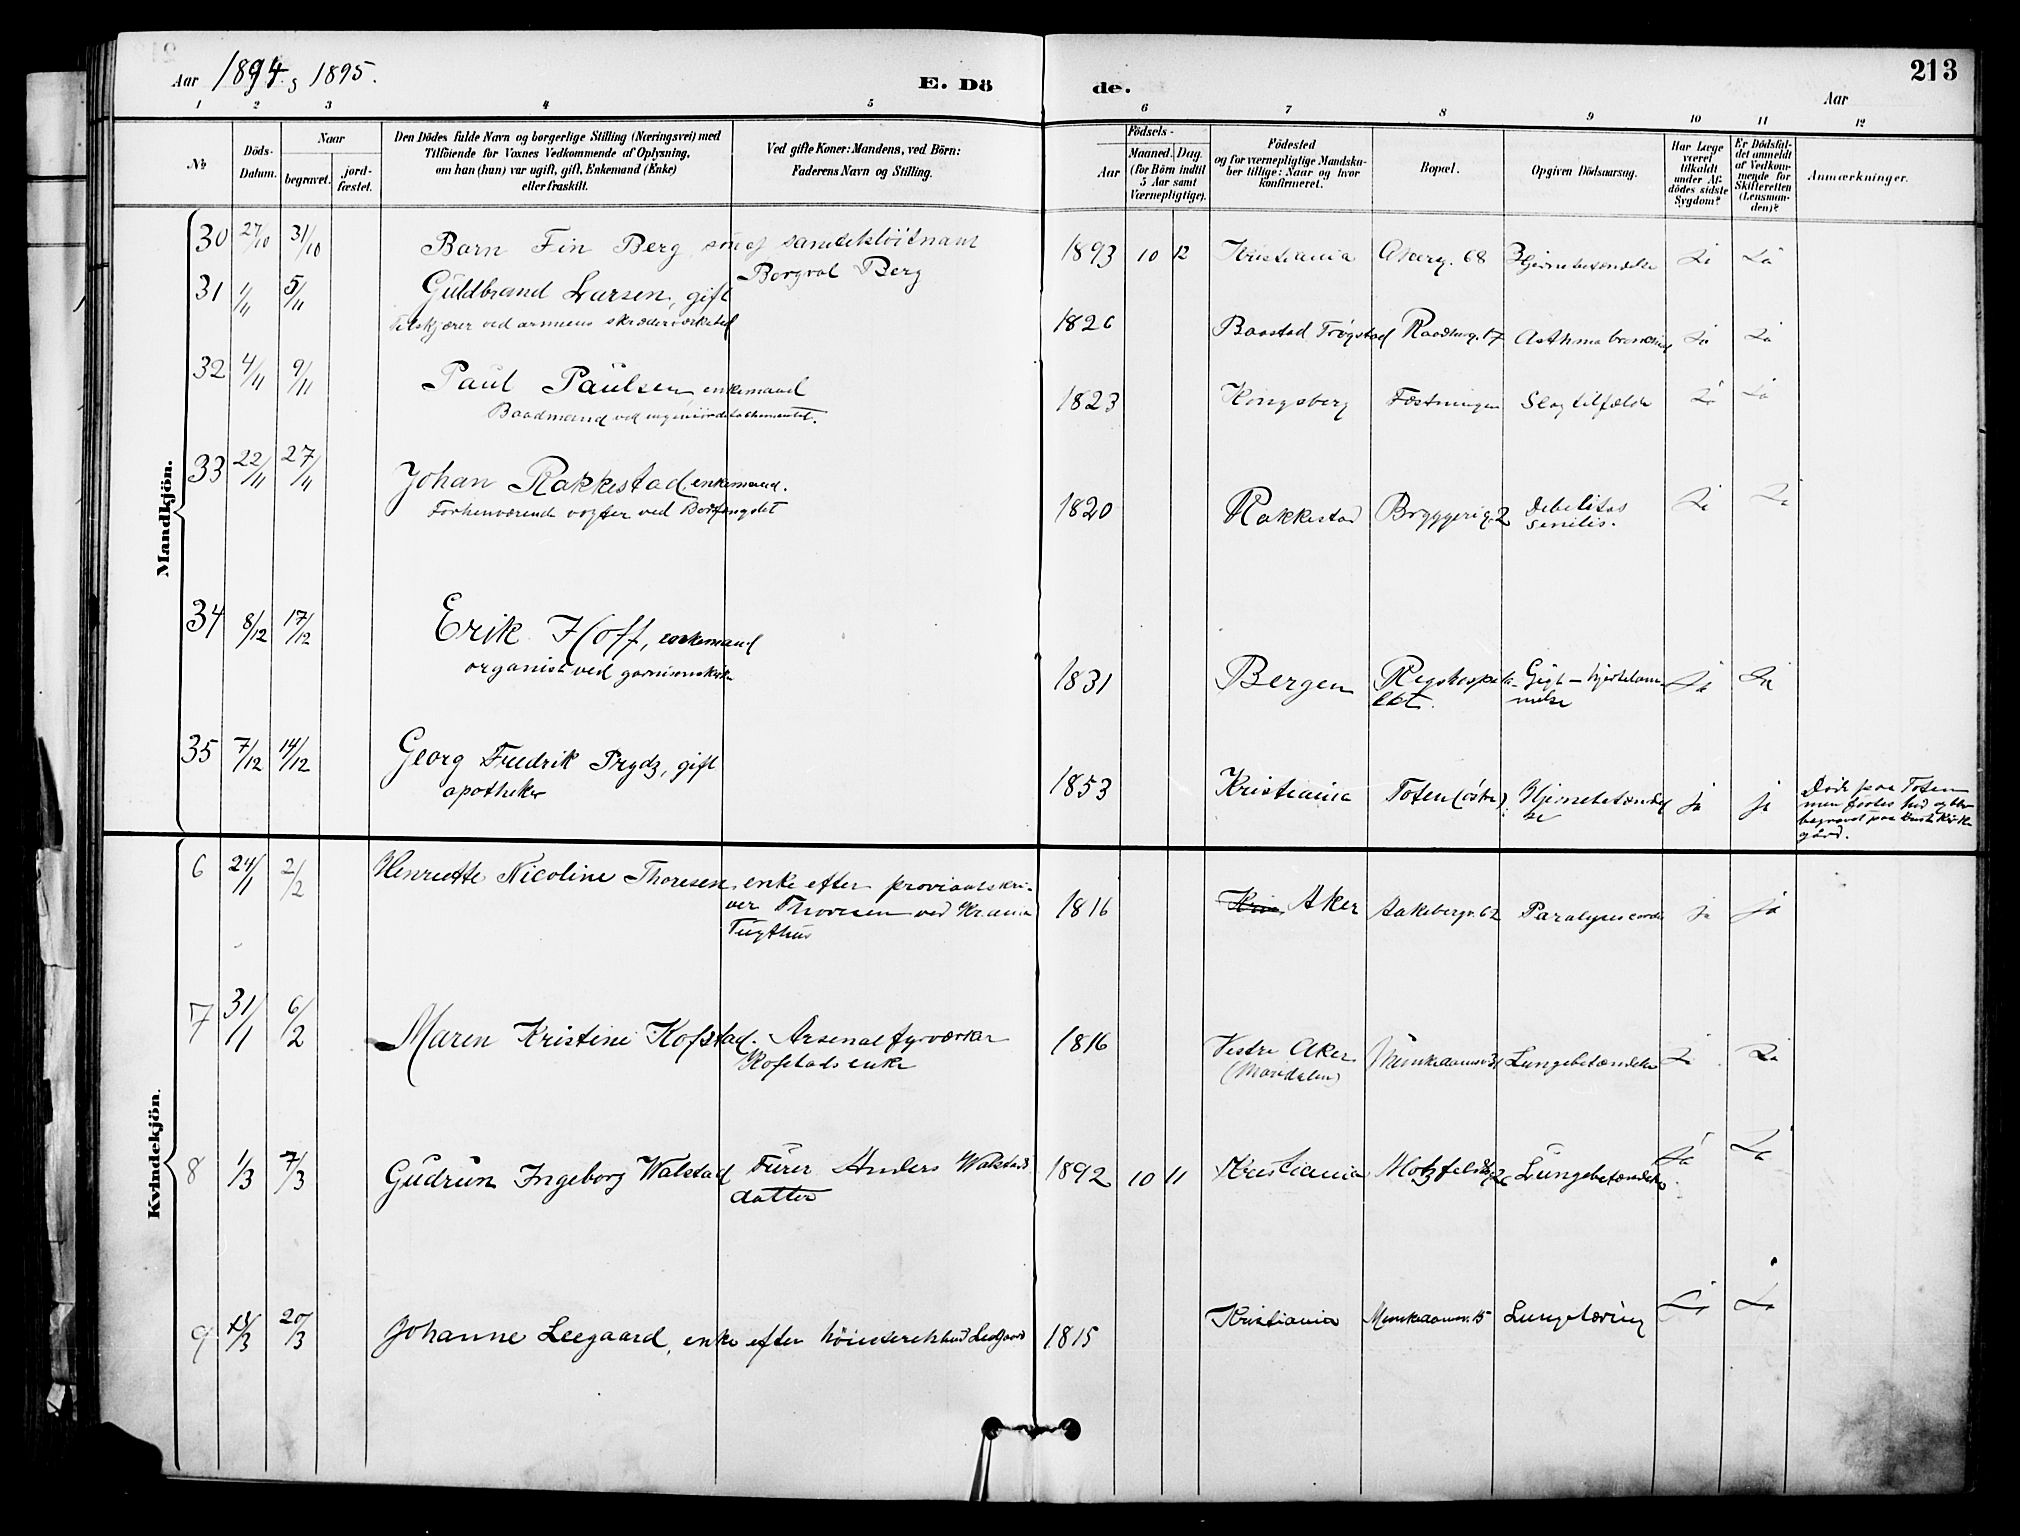 Aar 1894 & 1895.
E. Dö
de.
Aar
213
1 2 3 4 5 6 7 8 9 10 11 12
No
Döds-
Datum.
Naar
begravet.
jord-
fæstet.
Den Dödes fulde Navn og borgerlige Stilling (Næringsvei) med
Tilföiende for Voxnes Vedkommende af Oplysning,
om han (hun) var ugift, gift, Enkemand (Enke)
eller fraskilt.
Ved gifte Koner: Mandens, ved Börn:
Faderens Navn og Stilling.
Födsels-
Aar
Maaned.
Dag.
(for Börn indtil
5 Aar samt
Værnepligtige).
Födested
og for værnepligtige Mandska-
ber tillige: Naar og hvor
konfirmeret.
Bopæl.
Opgiven Dödsaarsag.
Har Læge
været
tilkaldt
under Af-
dödes sidste
Sygdom?
Er Dödsfal-
det anmeldt
af Vedkom-
mende for
Skifteretten
(Lensman-
den)?
Anmærkninger.
Mandkjön.
30 27/10 31/10 Barn Fin Berg, søn af
Borgval Berg
1893 10 12 Kristiania Akerg. 68 Hjernebetændelse Ja Ja
31 1/11 5/11 Guldbrand Larsen, gift
Tilskjærer ved armeens
1826 Baastad Trøgstad 17 Asthma Ja Ja
32 4/11 9/11 Paul Paulsen enkemand
Baadmand ved
1823 Kongsberg Fæstningen Slagtilfælde Ja Ja
33 22/11 27/11 Johan Rakkestad, enkemand.
Forhenværende vogter ved Bodsfængslet
1820 Rakkestad Bryggerig. 2 Debilitas
senilis. Ja Ja
34 8/12 17/12 Erik Hoff, enkemand
organist ved garnisonskirken
1831 Bergen Rigshospit-
alet. Gigt - hjertelam-
melse Ja Ja
35 7/12 14/12 Georg Fredrik Prydz, gift
apotheker
1853 Kristiania Toten (østre) Hjernebetændel
se ja ja
Døde paa Toten
men førtes hid og blev
begravet paa Krist Kirke
gård.
Kvindekjön.
6 24/1 2/2 Henriette Nicoline Thoresen, enke efter proviantskri-
ver Thoresen ved Krania
Tugthus
1816 Aker Aakebergv. 62 Paralysis cordis ja ja
7 31/1 6/2 Maren Kristine Kofstad. Arsenalfyrværker
Kofstads enke
1816 Vestre Aker
(Maridalen) Munkedamsv. 31 Lungebetændelse Ja Ja
8 1/3 7/3 Gudrun Ingeborg Walstad Furer Anders Walstads
datter
1892 10 11 Kristiania Lungebetændelse Ja Ja
9 20/3 Johanne Leegaard, enke efter
1815 Kristiania Munkedamsv. 15 Lungetæring Ja Ja